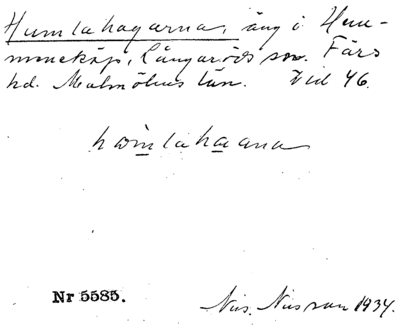 Humlahagarna, äng i Hem-
meneköp, Långaröds sn. Färs
hd. Malmöhus län. Vid 46.
hɷmlahaana
Nr 5585.
Nils. Nilsson 1934.